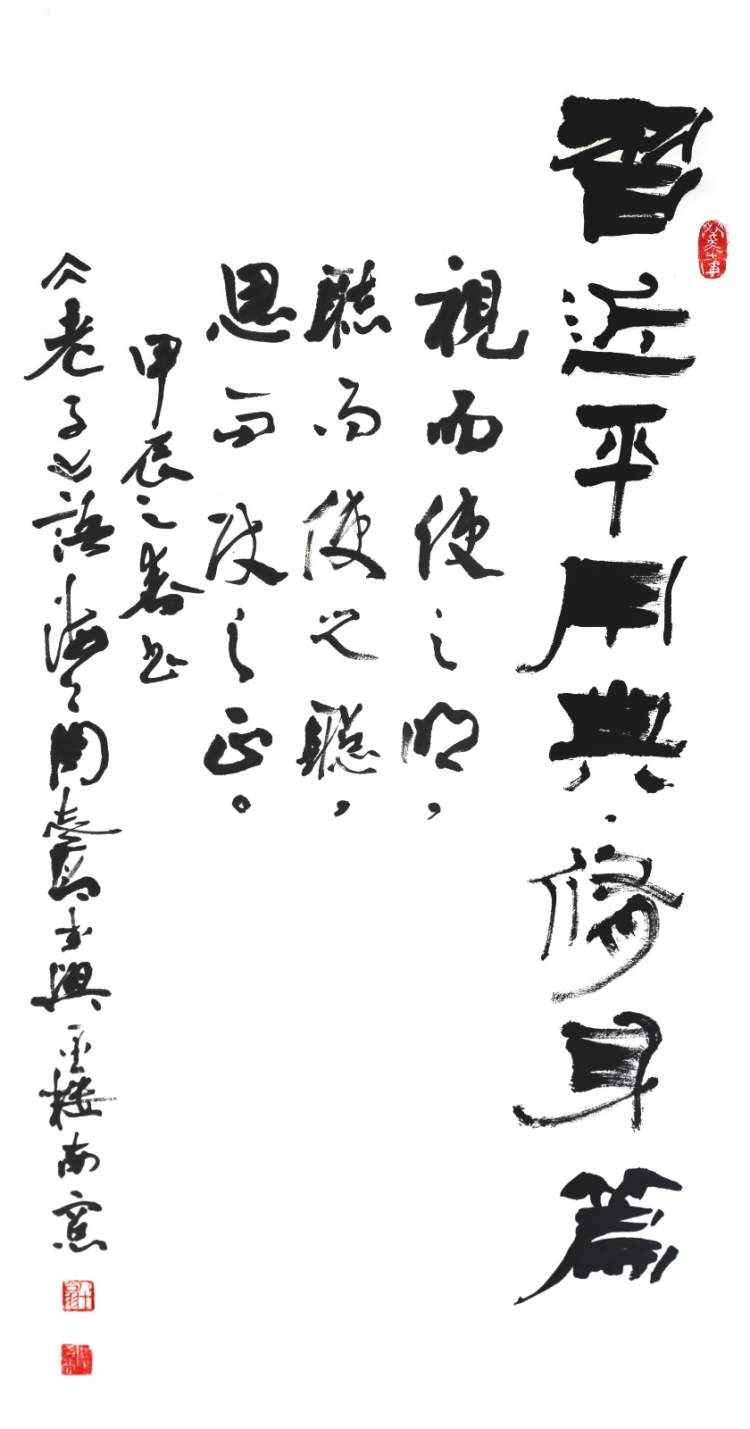 習近平用典·修身篇
視而使之明，
聽而使之聰，
思而使之正。
甲辰之春书
《老子》語海上周

书與
楼南窗